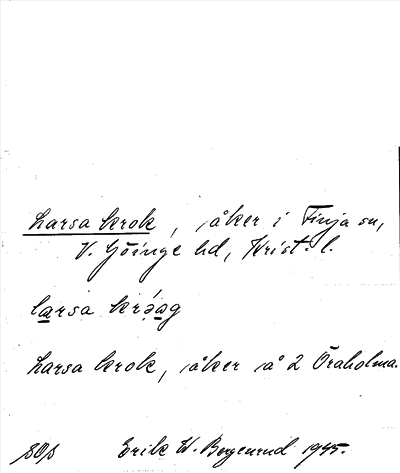 Larsa krok, åker i Finja sn,
V. Göinge hd, Krist. l.
larsa krå̀ag
Larsa krok, åker å 2 Öraholma.
Erik W. Bergenrud 1945.